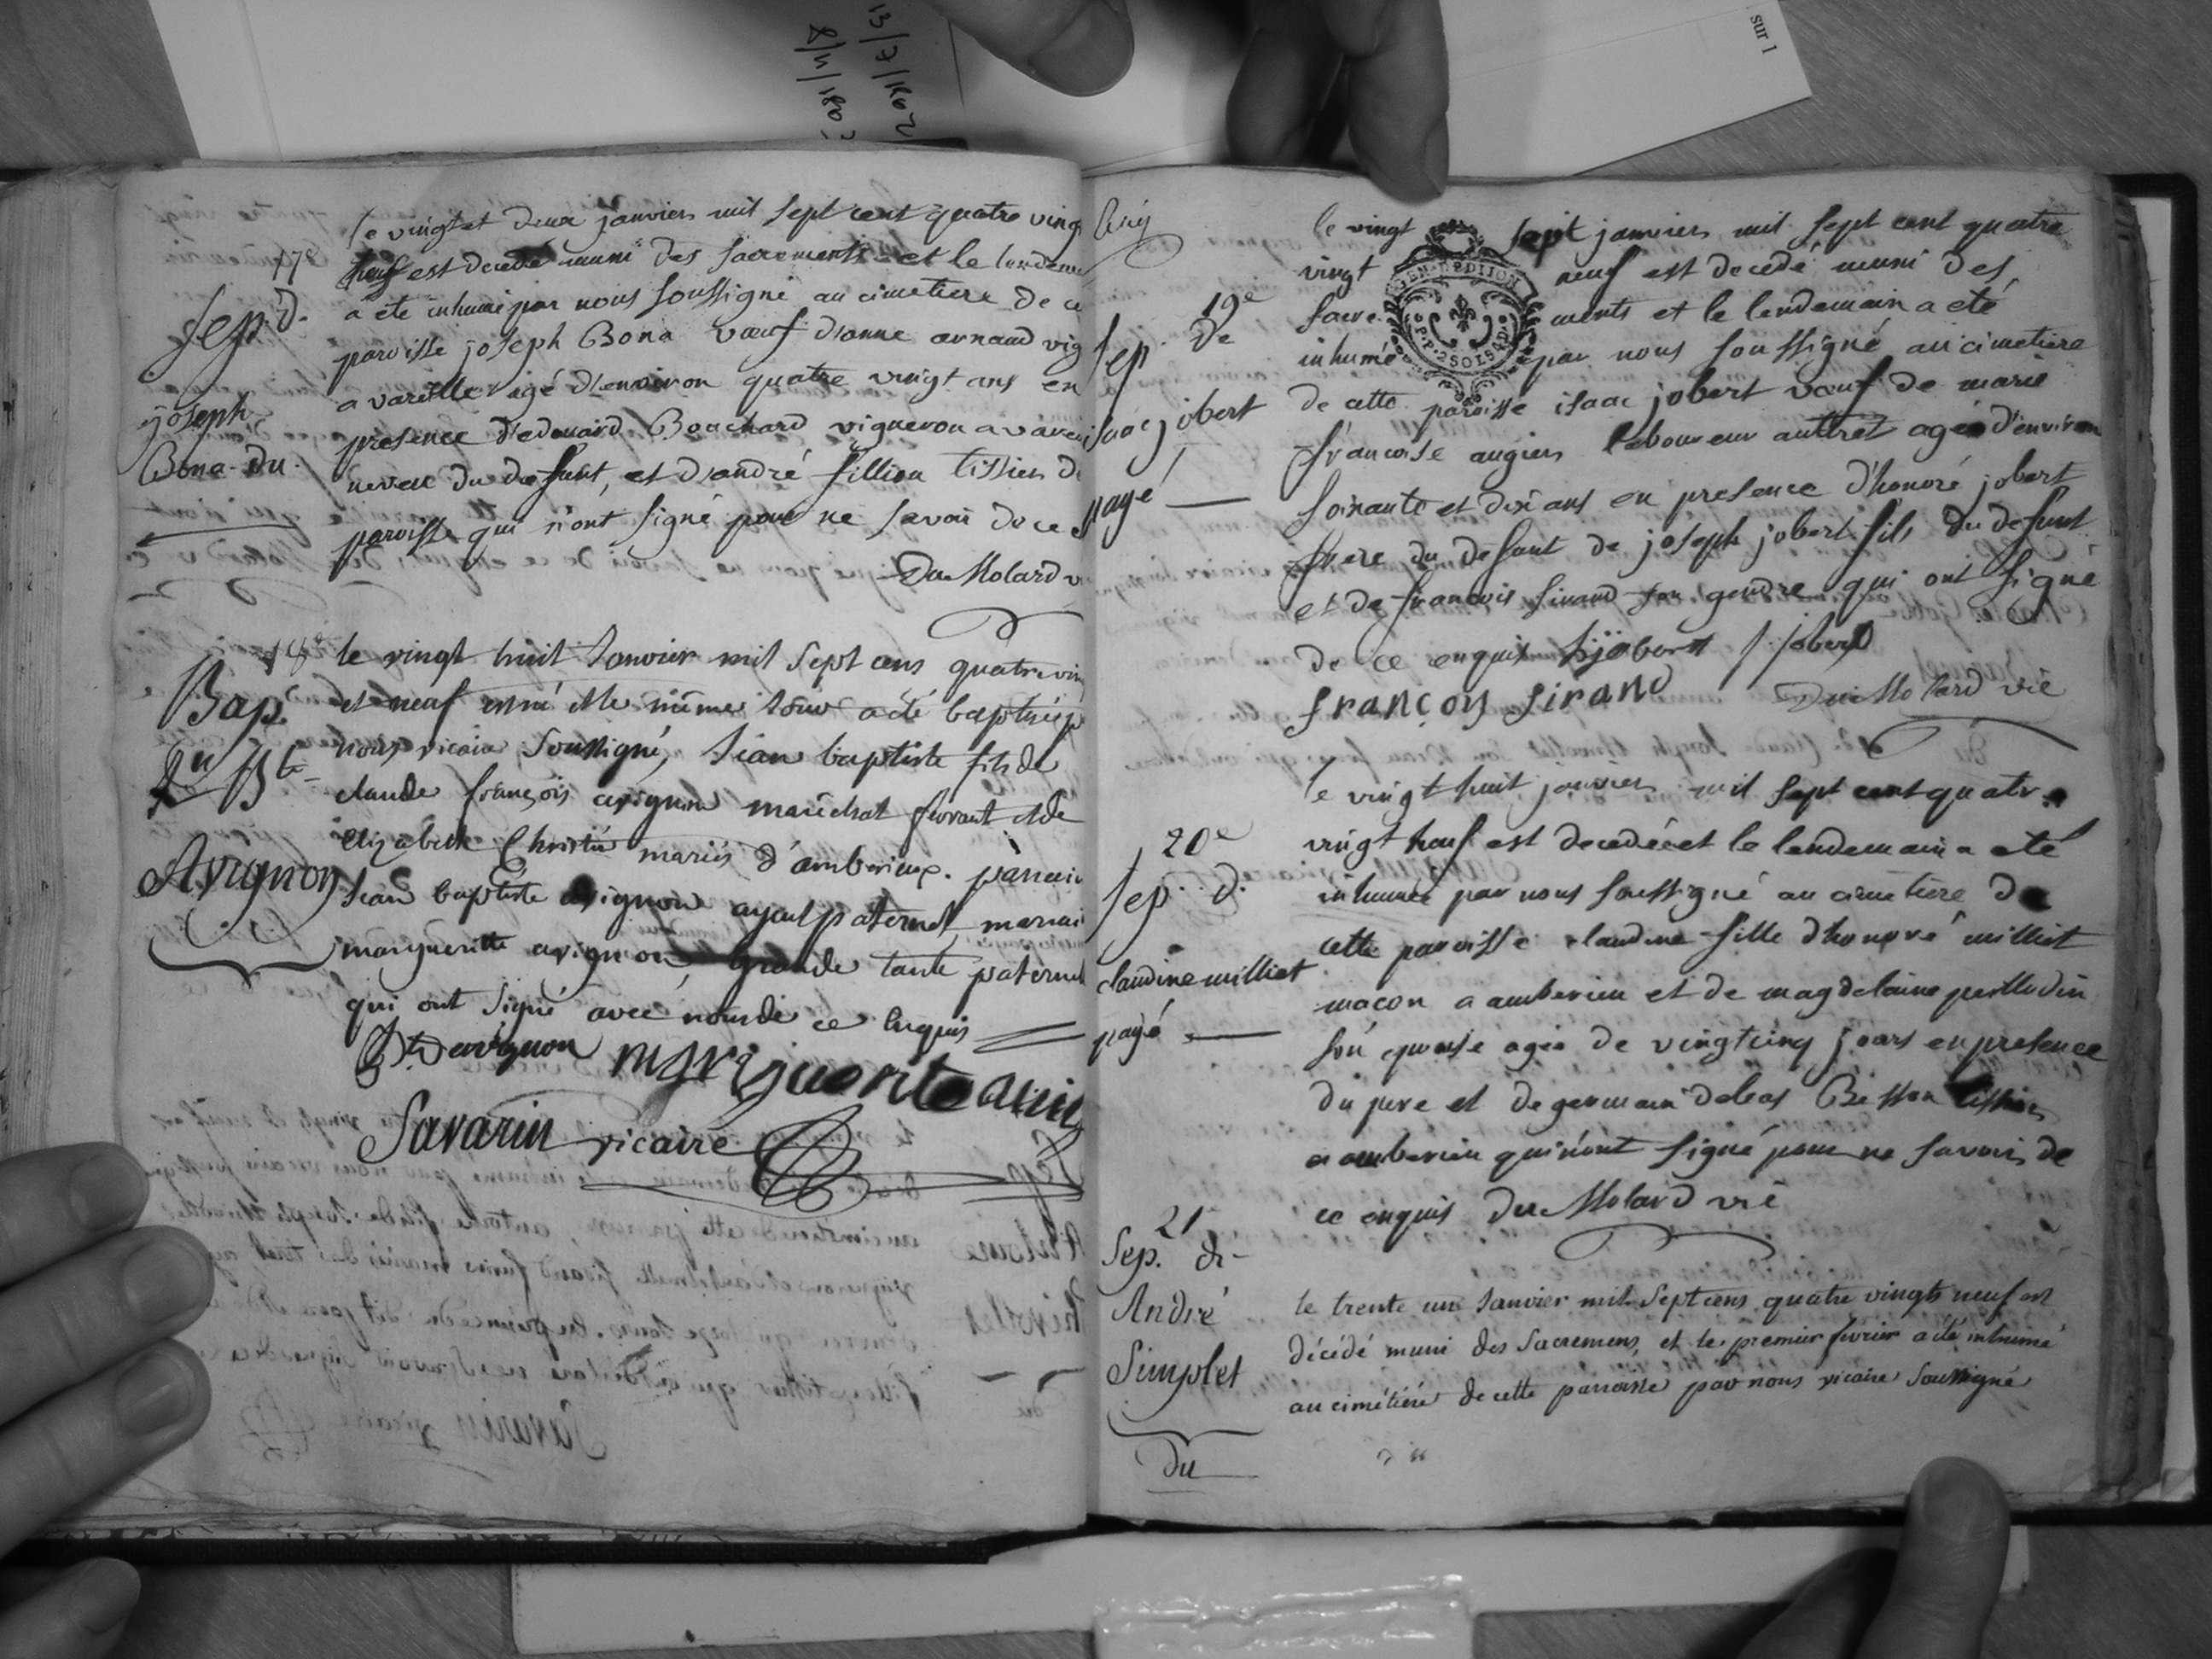 13/7/1802
8/4/1802
sur 1
17e
Sep. d.
joseph
Bona. du.
le vingt et deux janvier mil sept cent quatre ving
neuf est decedé muni des sacrements et le lendem
a été inhumé par nous soussigné au cimetiere de ce
paroisse joseph Bona vœuf d'anne arnaud vig
a vareille agé d'environ quatre vingt ans en
presence d'edouard Bouchard vigneron a vareil
neveu du defunt, et d'andré fillion tissier de
paroisse qui n'ont signé pour ne savoir de ce
Du Molard v
18e
Bapt.
Jn Bte
Avignon
le vingt huit Janvier mil sept cens quatre vin
et neuf est né et le même jour a été baptisé p
nous vicaire soussigné, Jean baptiste fils de
claude françois avignon maréchal ferrant et de
Elizabeth Christin mariés d'amberieux. parrain
Jean baptiste avignon ayeul paternel, marrai
marguerite avignon grande tante paternel
qui ont signé avec nous de ce enquis
Bte avignon marguerite avig
Savarin vicaire
Enq
19e
Sep. de
isaac jobert
payé
le vingt sept janvier mil sept cent quatre
vingt neuf est decedé muni des
sacre ments et le lendemain a été
inhumé par nous soussigné au cimetiere
de cette paroisse isaac jobert vœuf de marie
francoise augier laboureur au tiret agé d'environ
soixante et dix ans en presence d'honoré jobert
frere du defunt de joseph jobert fils du defunt
et de francois sirand son gendre qui ont signé
de ce enquis h jobert j jobert
françois sirand Du Molard vic
GEN. DE DIJON
P.P. 2 SOLS 4 D.
20e
Sep. d.
claudine milliet
payé
le vingt huit janvier mil sept cent quatre
vingt neuf est decedée et le lendemain a été
inhumée par nous soussigné au cimetiere de
cette paroisse claudine fille d'honoré milliet
macon a amberieu et de magdelaine perllodin
son epouse agée de vingt cinq jours en presence
du pere et de germain deleas Besson tissier
a amberieu qui n'ont signé pour ne savoir de
ce enquis Du Molard vic
21
Sep. d-
André
Simplet
du
le trente un Janvier mil sept cens quatre vingts neuf est
décédé muni des Sacremens, et le premier fevrier a été inhumé
au cimétiére de cette parroisse par nous vicaire soussigné